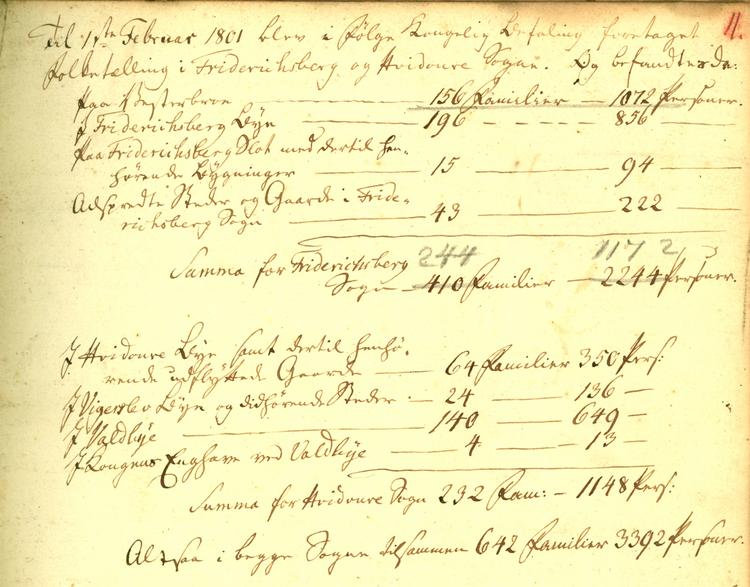 11.
Til 1ste Februar 1801 blev i Følge Kongelig Befaling foretaget
Folketælling i Friderichsberg og Hvidoure Sogne. Og befandtes da:
Paa Vesterbroe — 156 Familier — 1072 Personer.
J Friderichsberg Bye — 196 - - - - 856
Paa Friderichsberg Slot med dertil hen-
hørende Bygninger — 15 — 94 —
Adspredte Steder og Gaarde i Fride-
richsberg Sogn — 43 — 222 —
244 1172
Summa for Friderichsberg
Sogn — 410 Familier — 2244 Personer.
J Hvidoure Bye samt dertil henhø-
rende udflyttede Gaarde — 64 Familier 350 Pers:
J Vigerslev Byen og didhørende Steder — 24 — 136 —
J Valdbye — 140 — 649 —
J Kongens Enghave ved Valdbye — 4 — 13 —
Summa for Hvidoure Sogn 232 Fam: — 1148 Pers:
Altsaa i begge Sogne tilsammen 642 Familier 3392 Personer.